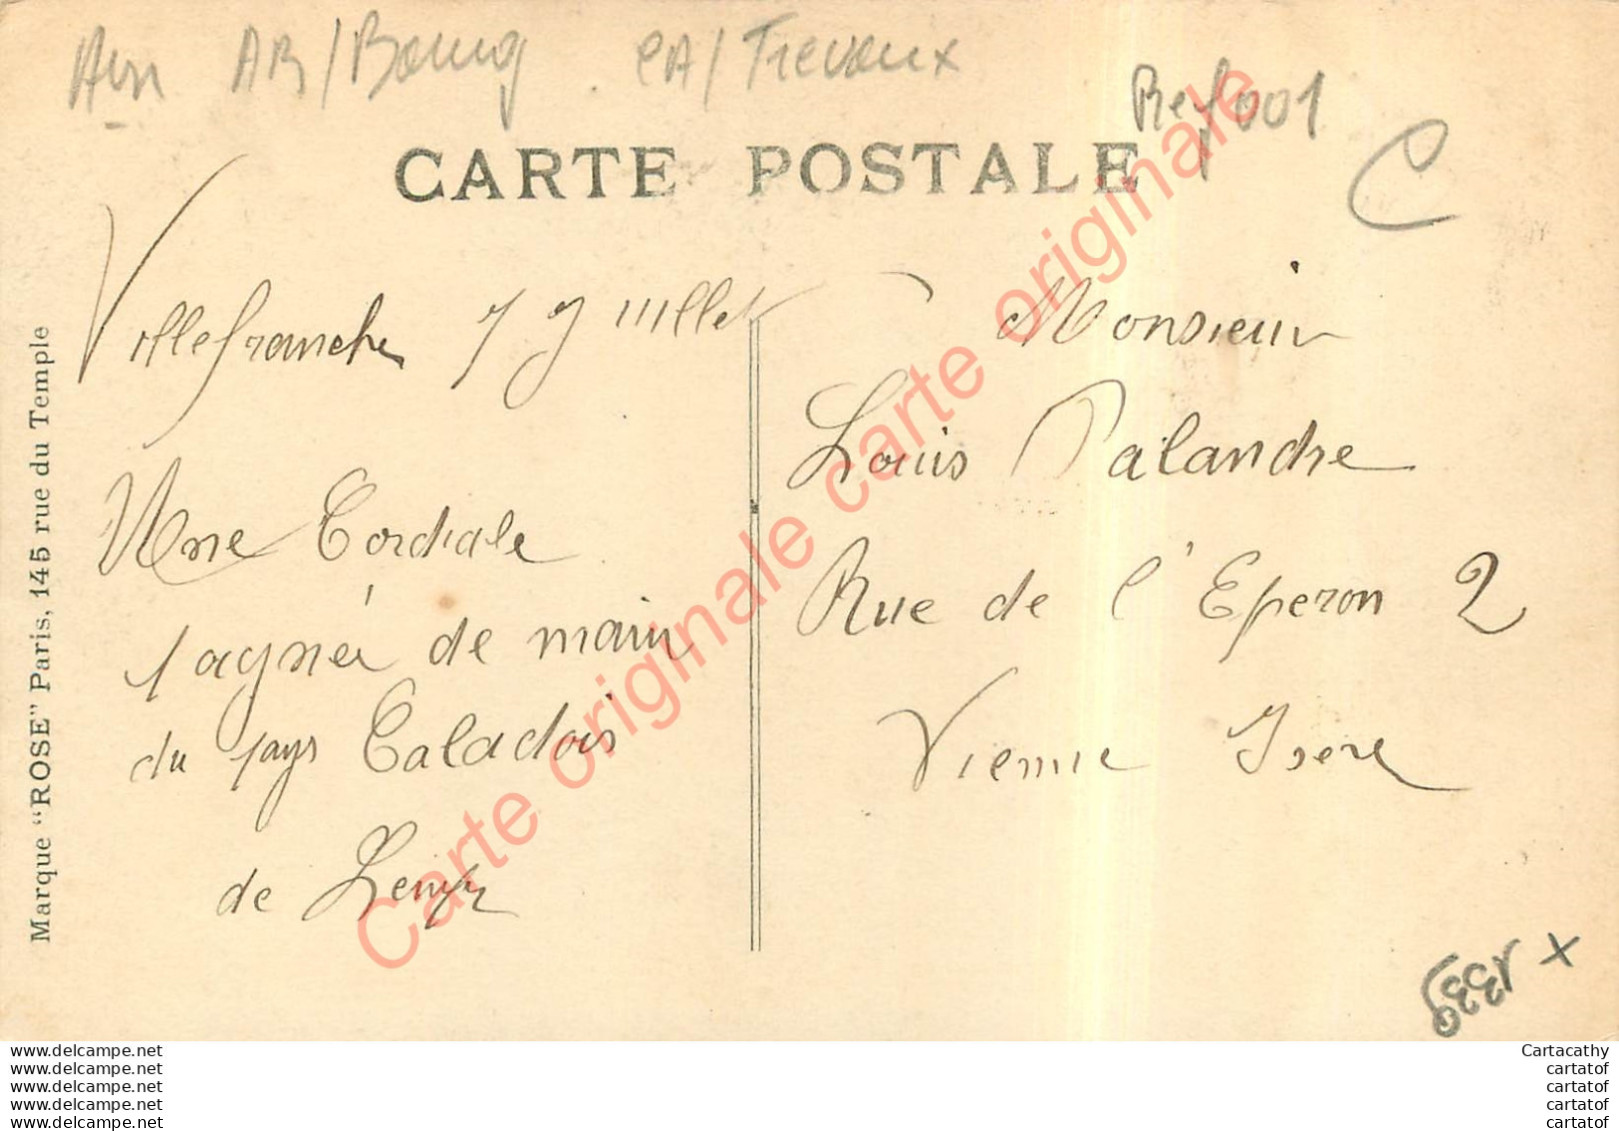 Ain AR/Bourg CA/Trevoux
Ref 001
C
CARTE POSTALE
Villefranche 7 Juillet
Une Cordiale
pognée de main
du pays Caladois
de
Monsieur
Louis Palandre
Rue de l'Eperon 2
Vienne Isere
Marque "ROSE" Paris, 145 rue du Temple
Carte originale carte originale carte originale
x 1339
www.delcampe.net
www.delcampe.net
www.delcampe.net
www.delcampe.net
www.delcampe.net
Cartacathy
cartatof
cartatof
cartatof
cartatof